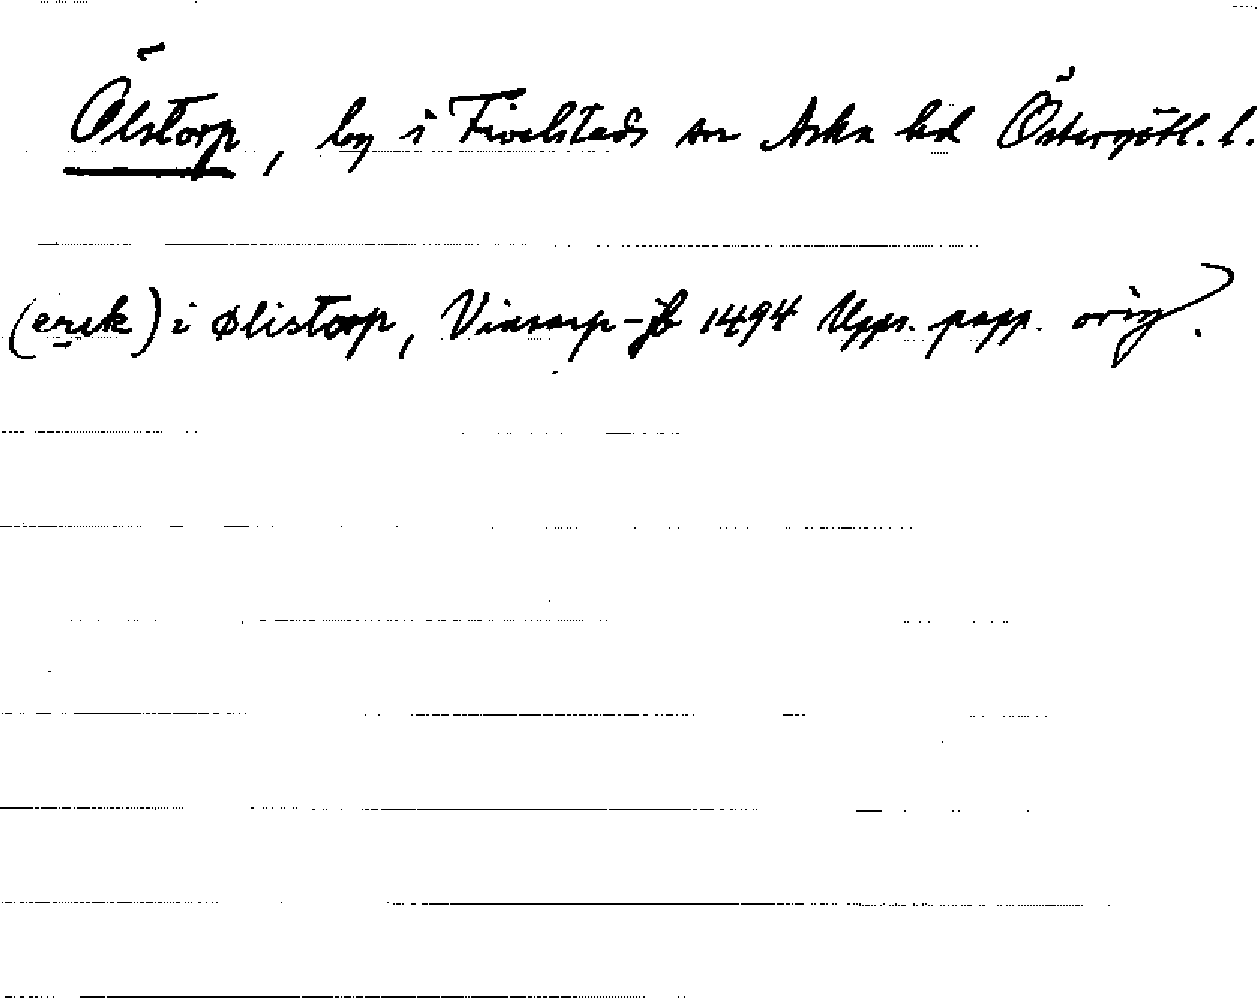 Ölstorp, by i Fivelstads sn Aska hd Östergötl. l.
(erik) i Ølistorp, Vinsarp-jb 1494 Upps. papp. orig.